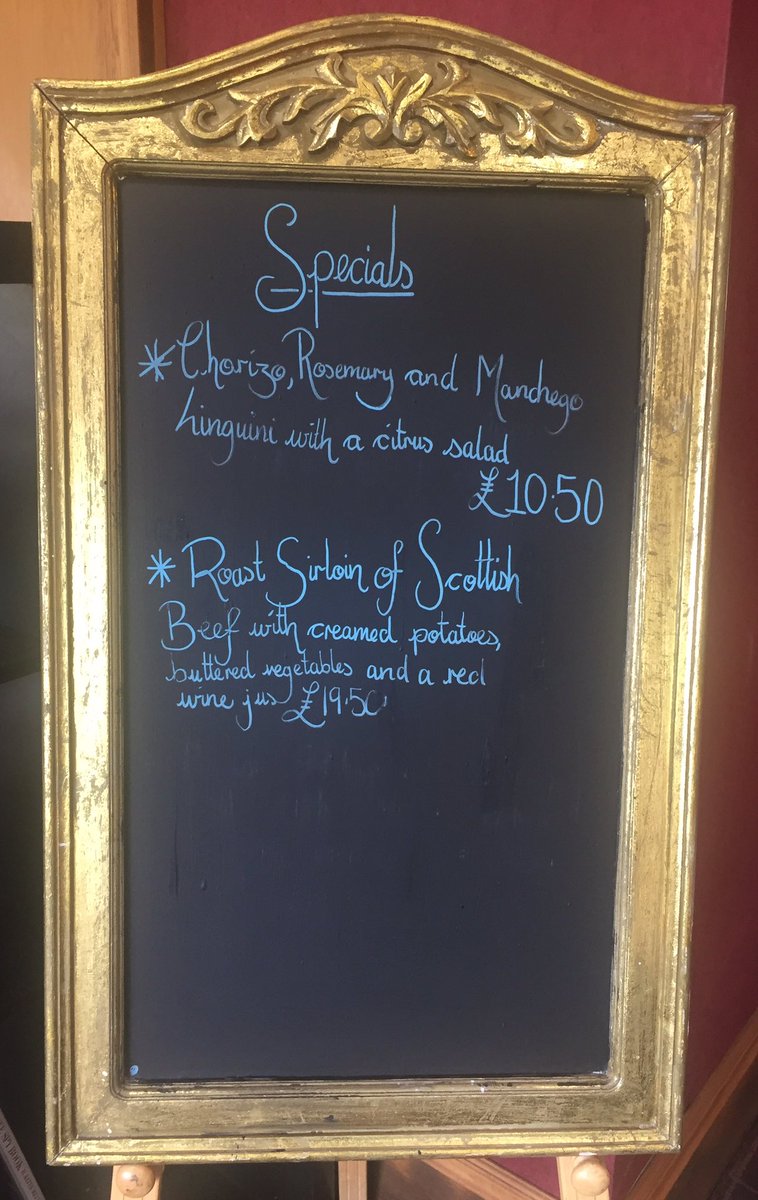 Specials
* Chorizo, Rosemary and Manchego
Linguini with a citrus salad
£10.50
* Roast Sirloin of Scottish
Beef with creamed potatoes,
buttered vegetables and a red
wine jus £19.50